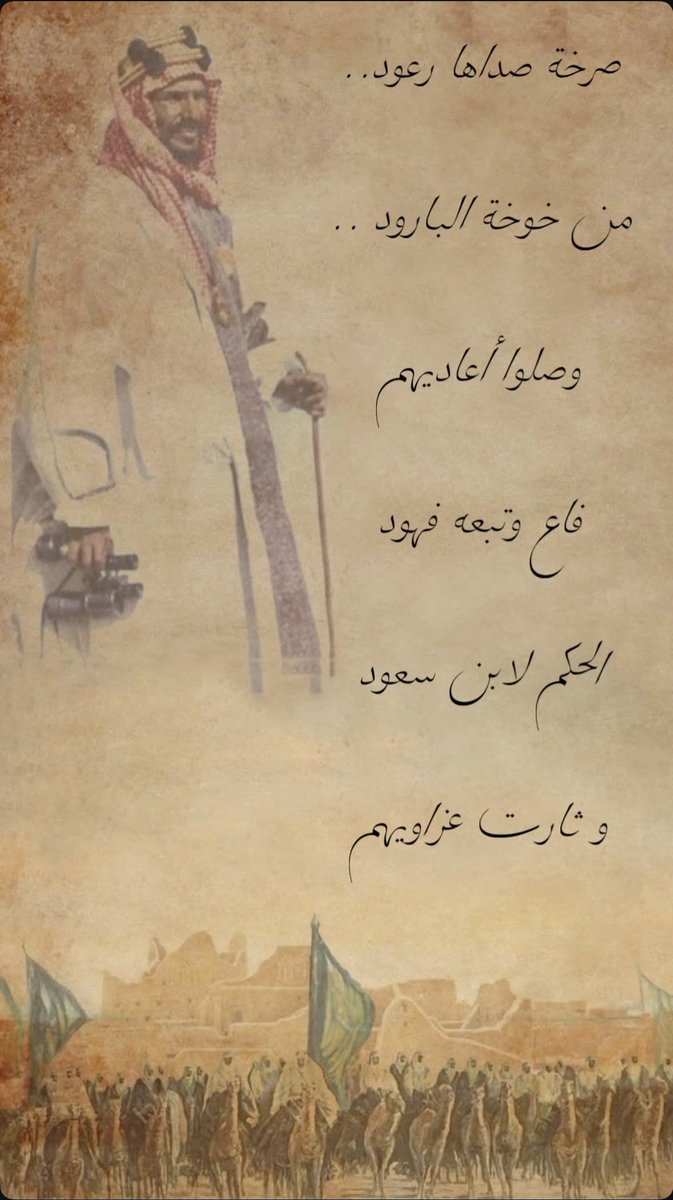 صرخة صداها رعود..
من خوخة البارود ..
وصلوا أعاديهم
فاع وتبعه فهود
الحكم لابن سعود
و ثارت عزاويهم